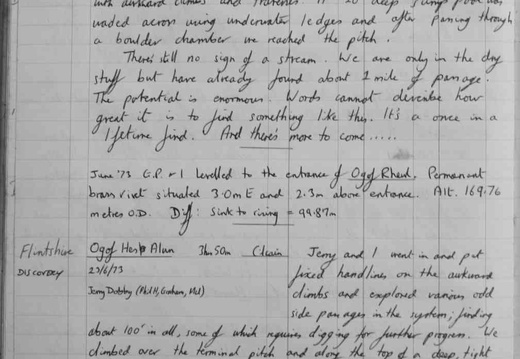 with awkward climbs and traverses. A 20' deep sump pool was
waded across using underwater ledges and after passing through
a boulder chamber we reached the pitch.
There's still no sign of a stream. We are only in the dry
stuff but have already found about 2 mile of passage.
The potential is enormous. Words cannot describe how
great it is to find something like this. It's a once in a
lifetime find. And there's more to come.....
June '73 G.P. + I levelled to the entrance of Ogof Rheid. Permanant
brass rivet situated 3.0m E and 2.3m above entrance. Alt. 169.76
metres O.D. Diff: Sink to rising = 99.87m
Flintshire Ogof Hesp Alun 3h 50m Clwin Jerry and I went in and put
DISCOVERY 23/6/73 fixed handlines on the awkward
climbs and explored various odd
Jerry Dobby (Phil H, Graham, Mel) side passages in the system; finding
about 100' in all, some of which requires digging for further progress. We
climbed over the terminal pitch and along the top of a deep, tight